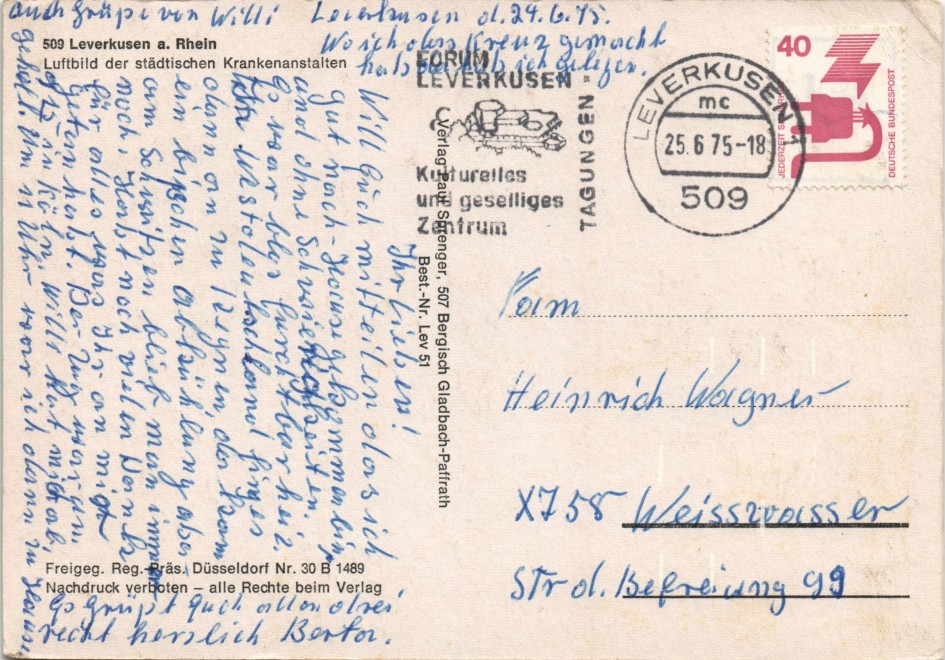 auch Grüße von Willi
Leverkusen d. 24.6.75.
Wo ich das Kreuz gemacht
hab da hab ich gelegen.
509 Leverkusen a. Rhein
Luftbild der städtischen Krankenanstalten
FORUM
LEVERKUSEN
Kulturelles
und geselliges
Zentrum
TAGUNGEN
LEVERKUSEN 1
mc
25.6.75-18
509
40
JEDERZEIT SICHERHEIT
DEUTSCHE BUNDESPOST
Ihr lieben!
Will Euch mitteilen das ich
gut nach Hause gekommen bin,
und ohne Schwierigkeiten.
Es war bloß furchtbar heiß.
In Westdeutschland fing es
dann an zu regnen da kam
ein bischen abkühlung aber
am Schwitzen blieb man immer
noch. Horst noch vielen Dank
für alles was Ihr an mich
getan habt. Der Zug war um
in Köln, Willi hat mich ab
geholt. Um 11 Uhr war ich dann zu Hause
Es grüßt Euch allen drei
recht herzlich Berta.
Verlag Paul Sprenger, 507 Bergisch Gladbach-Paffrath
Best.-Nr. Lev 51
Freigeg. Reg.-Präs. Düsseldorf Nr. 30 B 1489
Nachdruck verboten – alle Rechte beim Verlag
Fam
Heinrich Wagner
X758 Weisswasser
Str d. Befreiung 99